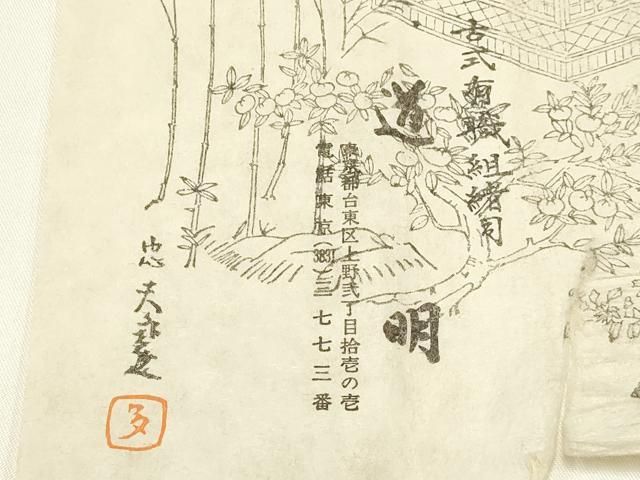 古式有職組緒司
道明
東京都台東区上野弐丁目拾壱の壱
電話東京(3831)三七七三番
忠